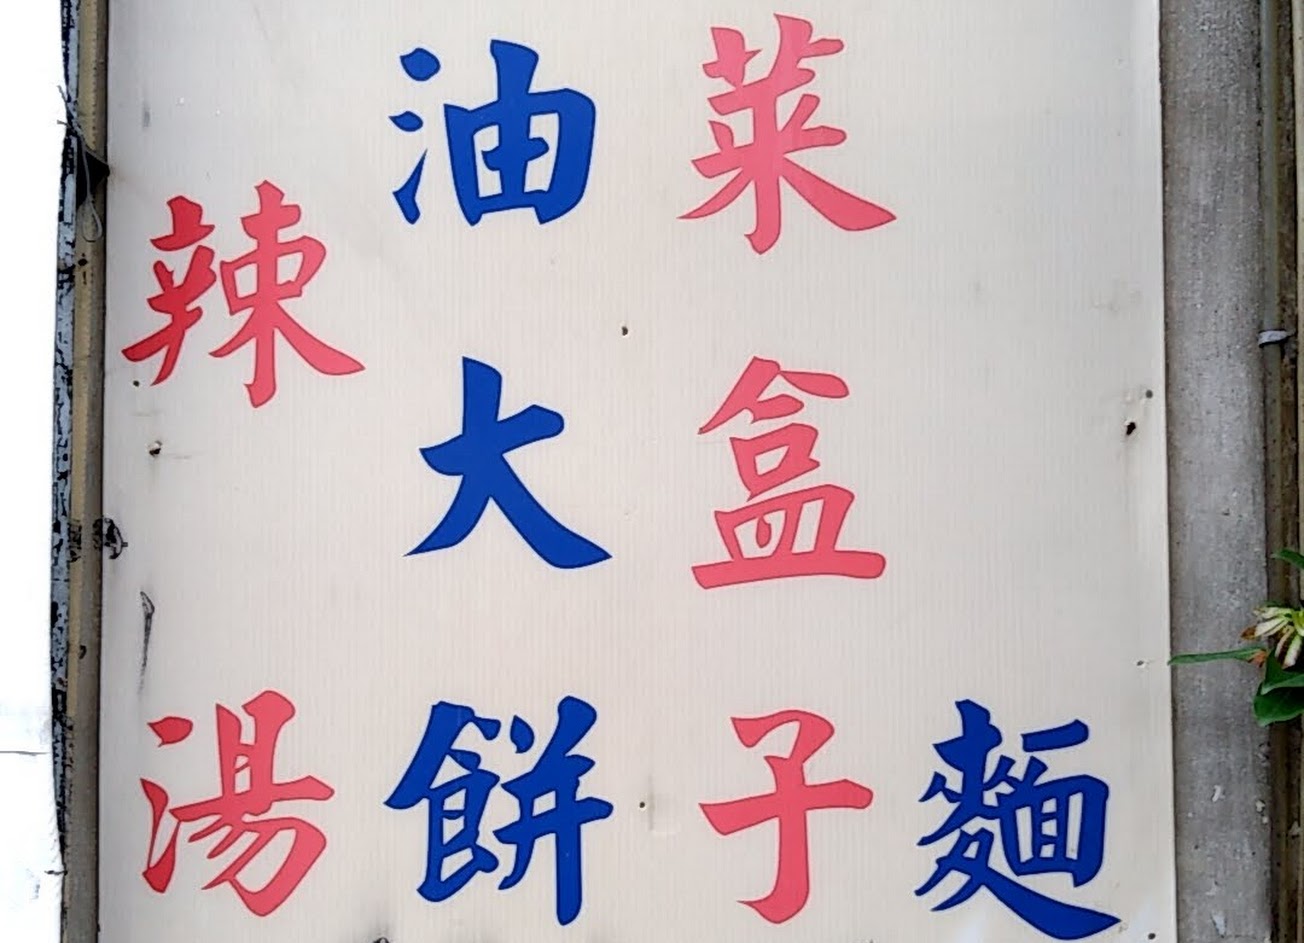 麵
菜盒子
油大餅
辣湯